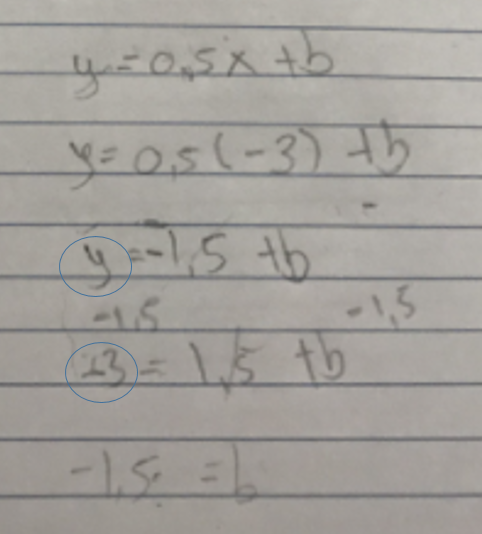 y=0,5x+b
y=0,5(-3)+b
y=-1,5+b
-1,5 -1,5
-3=1,5+b
-1,5=b